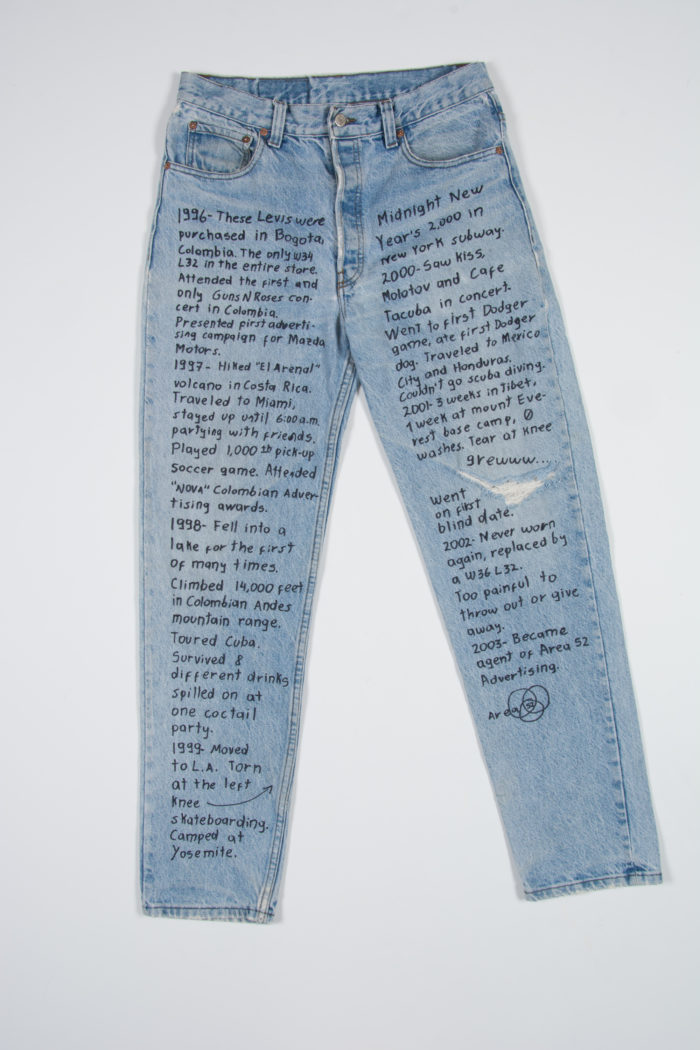 1996- These Levis were
purchased in Bogota,
Colombia. The only W34
L32 in the entire store.
Attended the first and
only Guns N Roses con-
cert in Colombia.
Presented first adverti-
sing campaign for Mazda
Motors.
1997- Hiked "El Arenal"
volcano in Costa Rica.
Traveled to Miami,
stayed up until 6:00 a.m.
partying with friends.
Played 1,000th pick-up
soccer game. Attended
"NOVA" Colombian Adver-
tising awards.
1998- Fell into a
lake for the first
of many times.
Climbed 14,000 feet
in Colombian Andes
mountain range.
Toured Cuba.
Survived 8
different drinks
spilled on at
one coctail
party.
1999- Moved
to L.A. Torn
at the left
Knee
skateboarding.
Camped at
Yosemite.
Midnight New
Year's 2,000 in
New York subway.
2000- Saw Kiss,
Molotov and Cafe
Tacuba in concert.
Went to first Dodger
game, ate first Dodger
dog. Traveled to Mexico
City and Honduras.
Couldn't go scuba diving.
2001- 3 weeks in Tibet,
1 week at mount Eve-
rest base camp, 0
washes. Tear at knee
grewww...
Went
on first
blind date.
2002- Never worn
again, replaced by
a W36 L32.
Too painful to
throw out or give
away.
2003- Became
agent of Area 52
Advertising.
Area 52